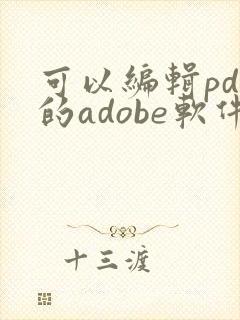 可以編輯pd
的adobe軟件
十三渡